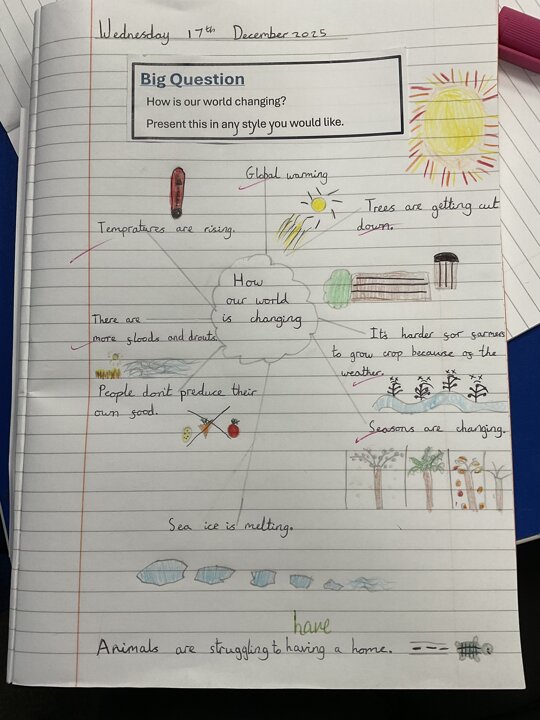 Wednesday 17th December 2025
Big Question
How is our world changing?
Present this in any style you would like.
Global warming
Tempratures are rising.
Trees are getting cut
down.
How
our world
is changing
There are
more floods and drouts.
It's harder for farmers
to grow crop because of the
weather.
People don't preduce their
own food.
Seasons are changing.
Sea ice is melting.
have
Animals are struggling to having a home.